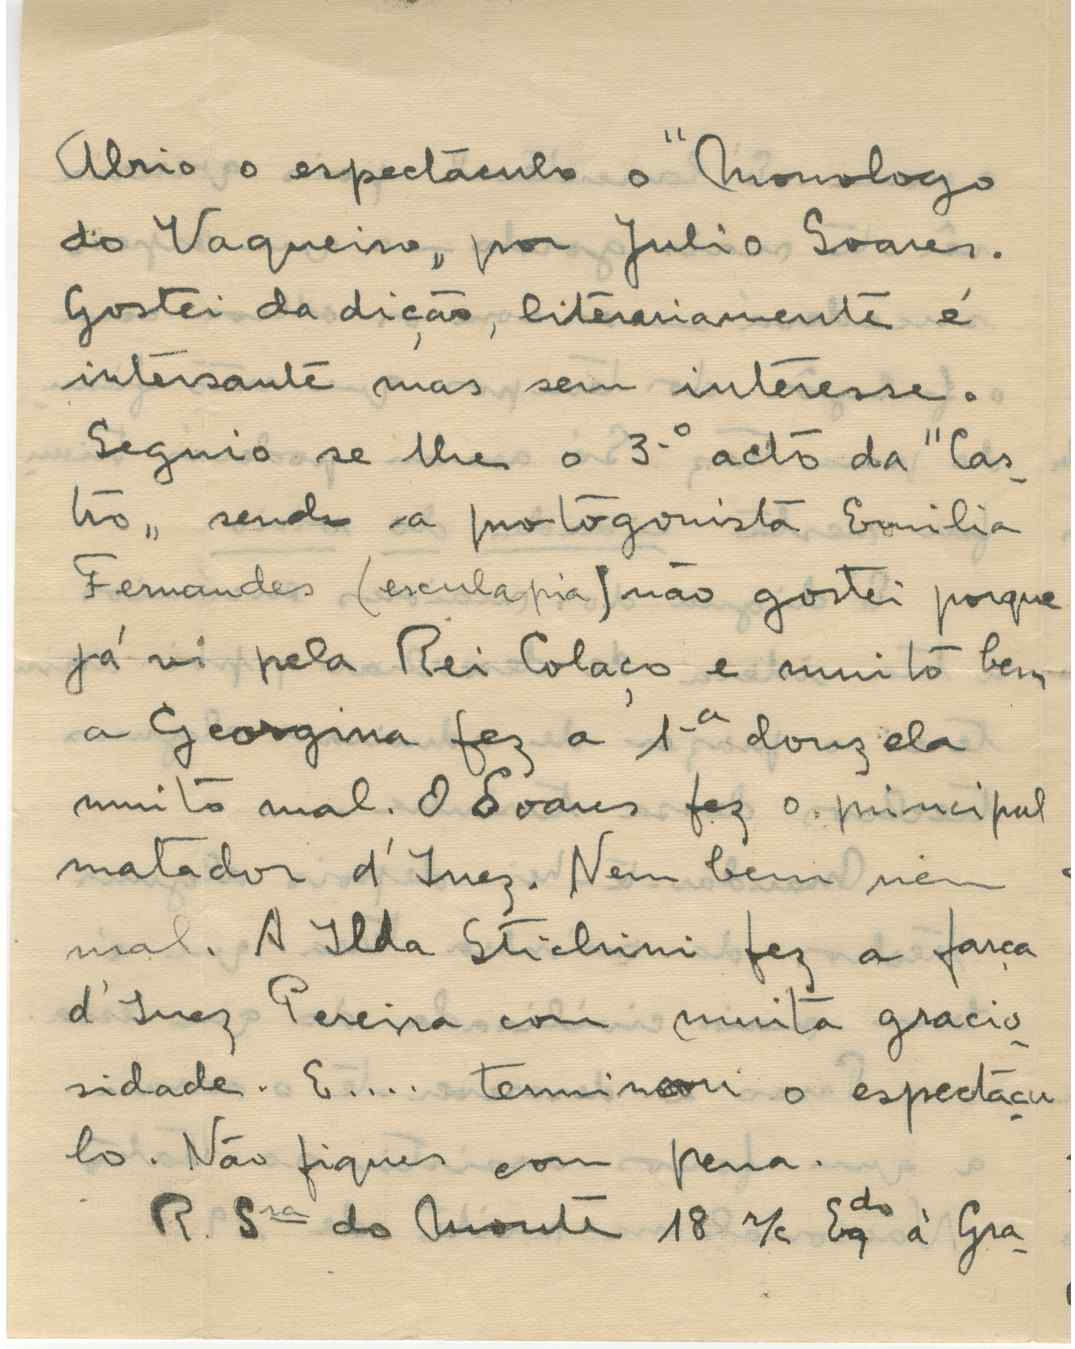 Abrio o espectáculo o "Monologo
do Vaqueiro„ por Julio Soares.
Gostei da dição, literariamente é
intersante mas sem interesse.
Seguio se lhe o 3.º acto da "Cas-
tro„ sendo a protogonista Emilia
Fernandes (esculapia) não gostei porque
já vi pela Rei Colaço e muito bem
a Georgina fez a 1.ª donzela
muito mal. O Soares fez o principal
matador d'Inez. Nem bem nem
mal. A Ilda Stichini fez a farça
d'Inez Pereira com muita gracio-
sidade. E.... terminou o espectácu
lo. Não fiques com pena.
R. Sra do Monte 18 r/c Eqdo à Gra-